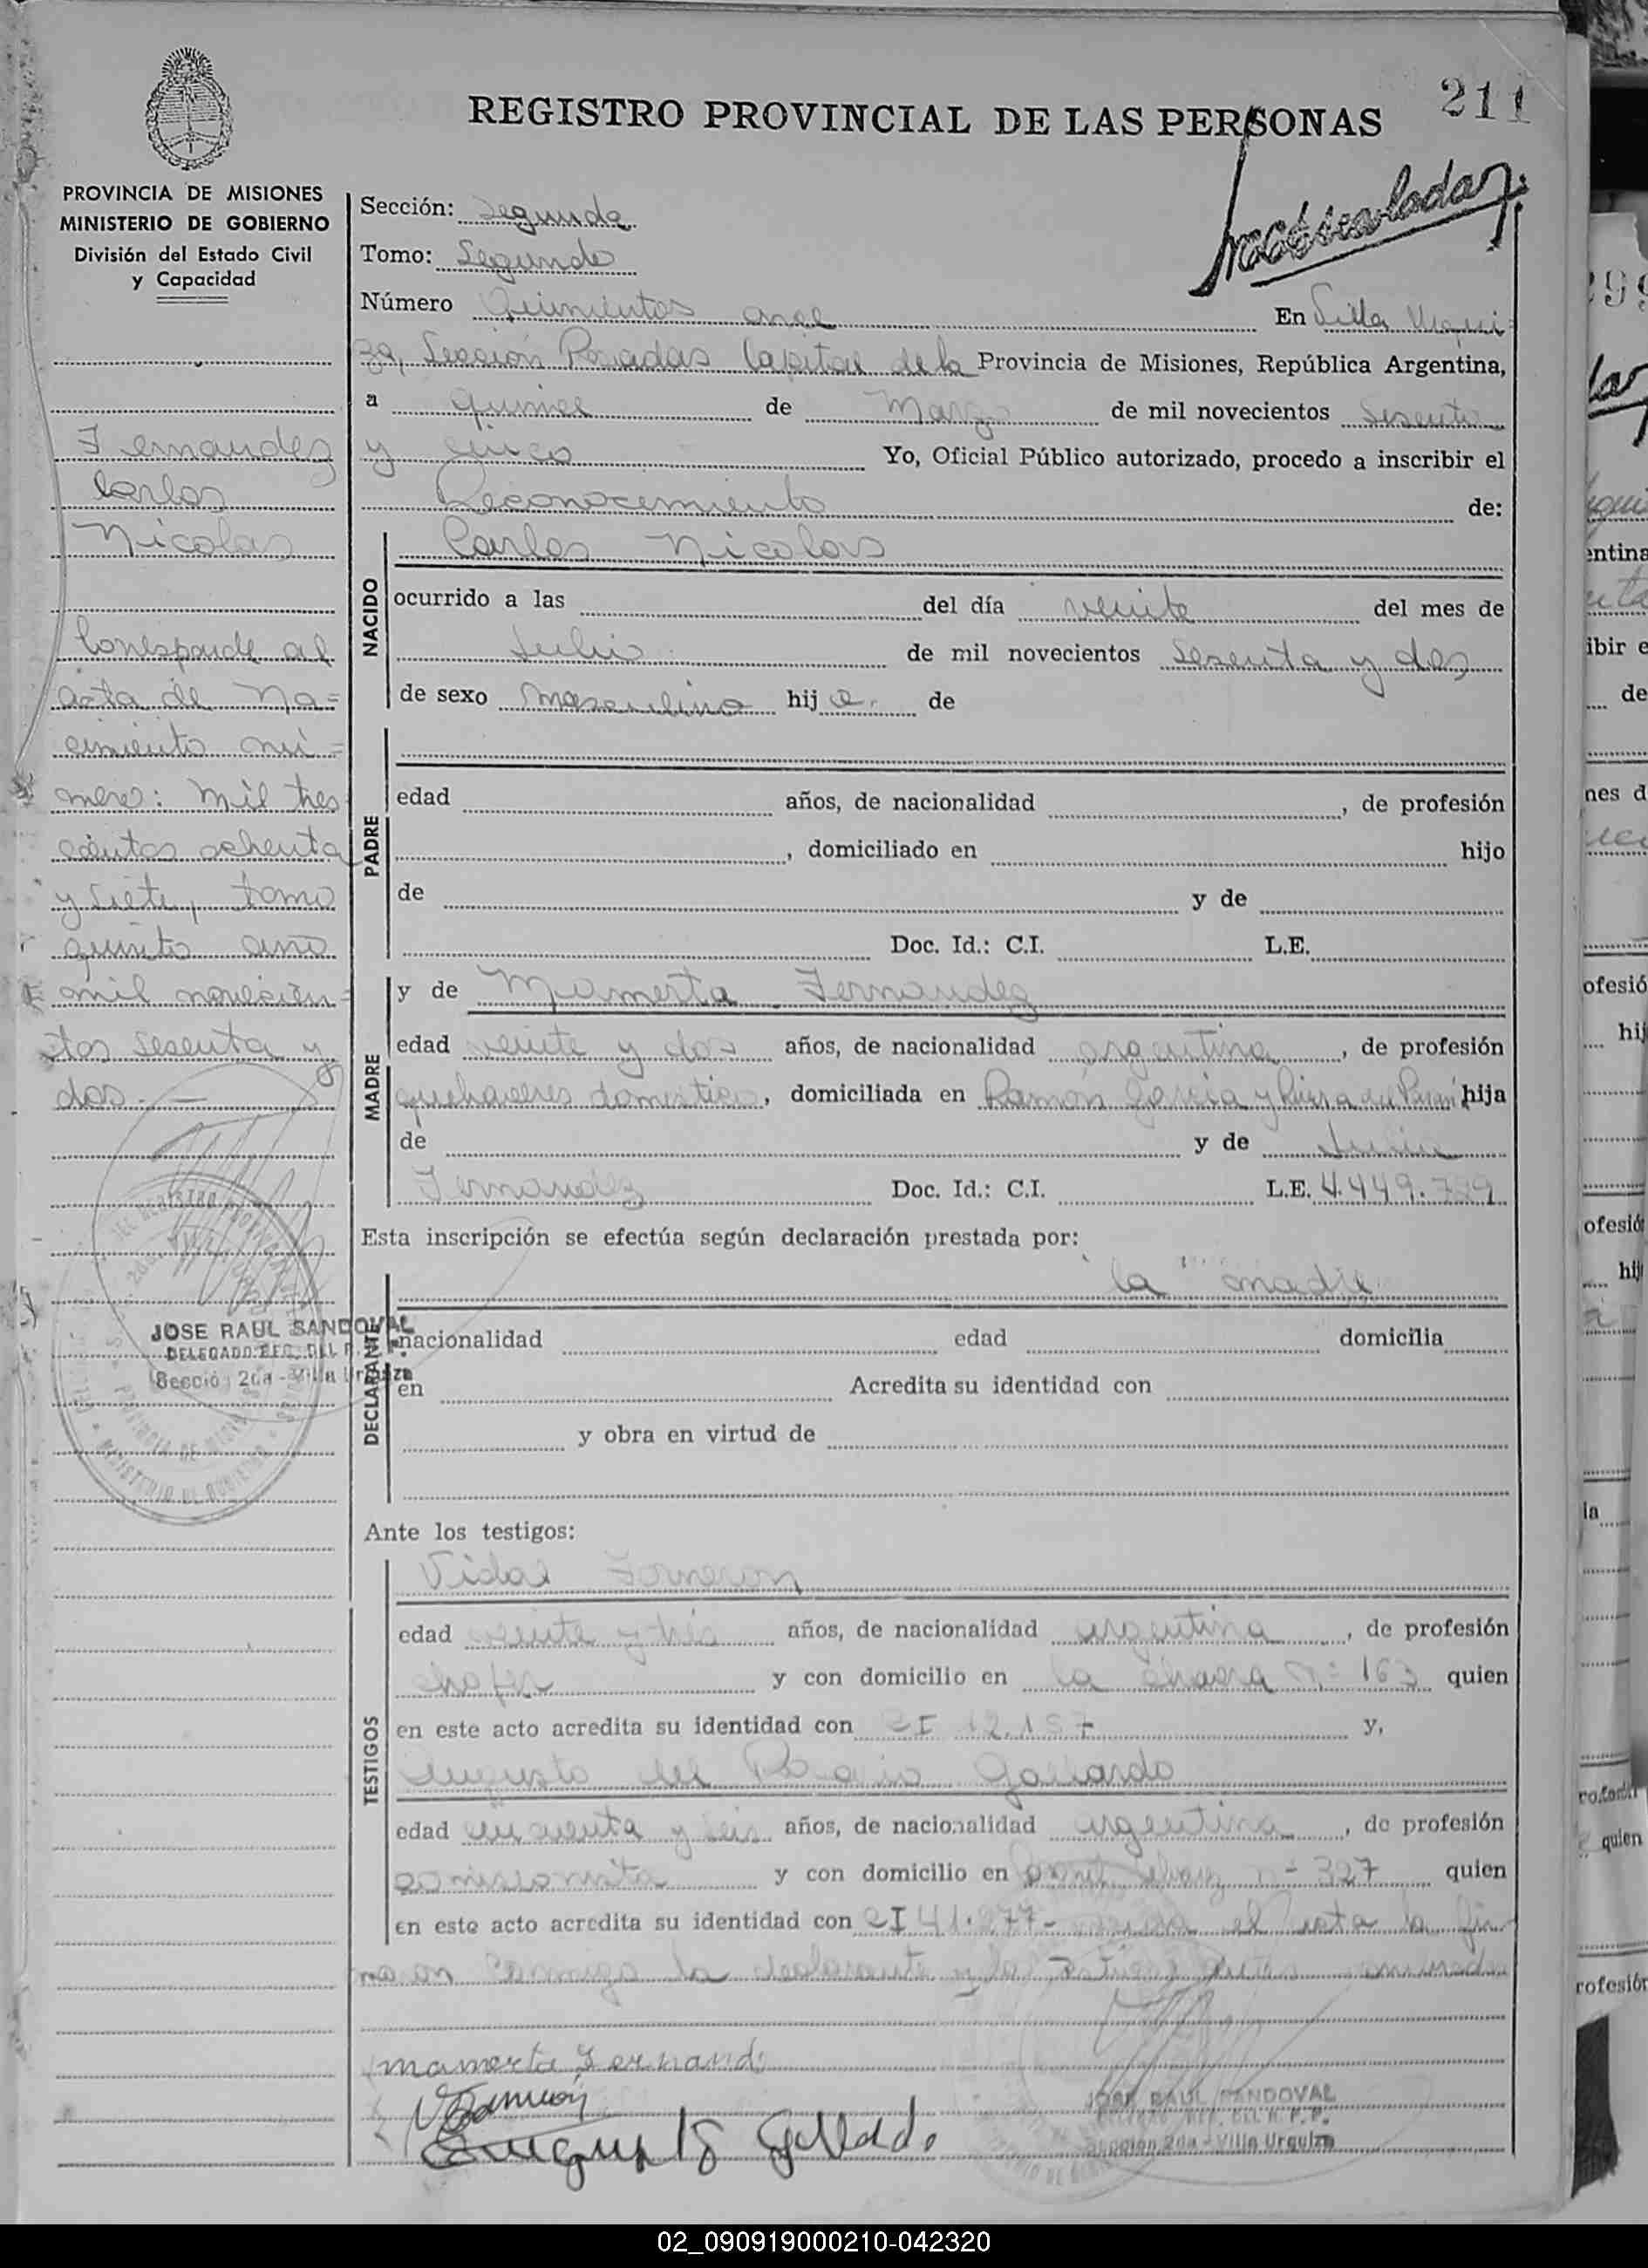 211
REGISTRO PROVINCIAL DE LAS PERSONAS
PROVINCIA DE MISIONES
MINISTERIO DE GOBIERNO
División del Estado Civil
y Capacidad
Fernandez
Carlos
Nicolas
Corresponde al
acta de Na=
cimiento nú=
mero: mil tres
cientos ochenta
y siete, tomo
quinto año
mil novecien=
tos sesenta y
dos.-
JOSE RAUL SANDOVAL
DELEGADO REG. DEL R. P. P.
Sección 2da - Villa Urquiza
Sección: Segunda
Tomo: Segundo
Número Quinientos once En Villa Urqui=
za, Sección Posadas Capital de la Provincia de Misiones, República Argentina,
a quince de Marzo de mil novecientos sesenta
y cinco Yo, Oficial Público autorizado, procedo a inscribir el
Reconocimiento de:
NACIDO
Carlos Nicolas
ocurrido a las del día veinte del mes de
Julio de mil novecientos sesenta y dos
de sexo masculino hijo de
PADRE
edad años, de nacionalidad , de profesión
, domiciliado en hijo
de y de
Doc. Id.: C.I. L.E.
MADRE
y de Mamerta Fernandez
edad veinte y dos años, de nacionalidad argentina, de profesión
quehaceres domesticos, domiciliada en Ramón Garcia y hija
de y de
Fernandez Doc. Id.: C.I. L.E. 4.449.739
Esta inscripción se efectúa según declaración prestada por:
la madre
DECLARANTE
nacionalidad edad domicilia
en Acredita su identidad con
y obra en virtud de
Ante los testigos:
TESTIGOS
Vidal
edad veinte y tres años, de nacionalidad argentina, de profesión
chofer y con domicilio en la chacra n: 163 quien
en este acto acredita su identidad con CI 12.157 y,
Augusto del Rosario Gallardo
edad cincuenta y seis años, de nacionalidad argentina, de profesión
comisionista y con domicilio en n= 327 quien
en este acto acredita su identidad con CI 41.277- el acta la fir
maron conmigo la declarante y los testigos
mamerta Fernand
Augusto Gallardo
JOSE RAUL SANDOVAL
DELEGADO REG. DEL R. P. P.
Sección 2da - Villa Urquiza
02_090919000210-042320